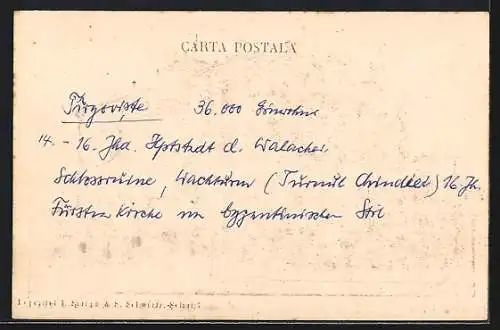 CARTA POSTALA
Tîrgovişte 36.000 Einwohner
14. - 16. Jhd. Hptstadt d. Walachei
Schlossruine, Wachturm (Turnul Chindiei) 16. Jh.
Fürsten Kirche im byzantinischen Stil